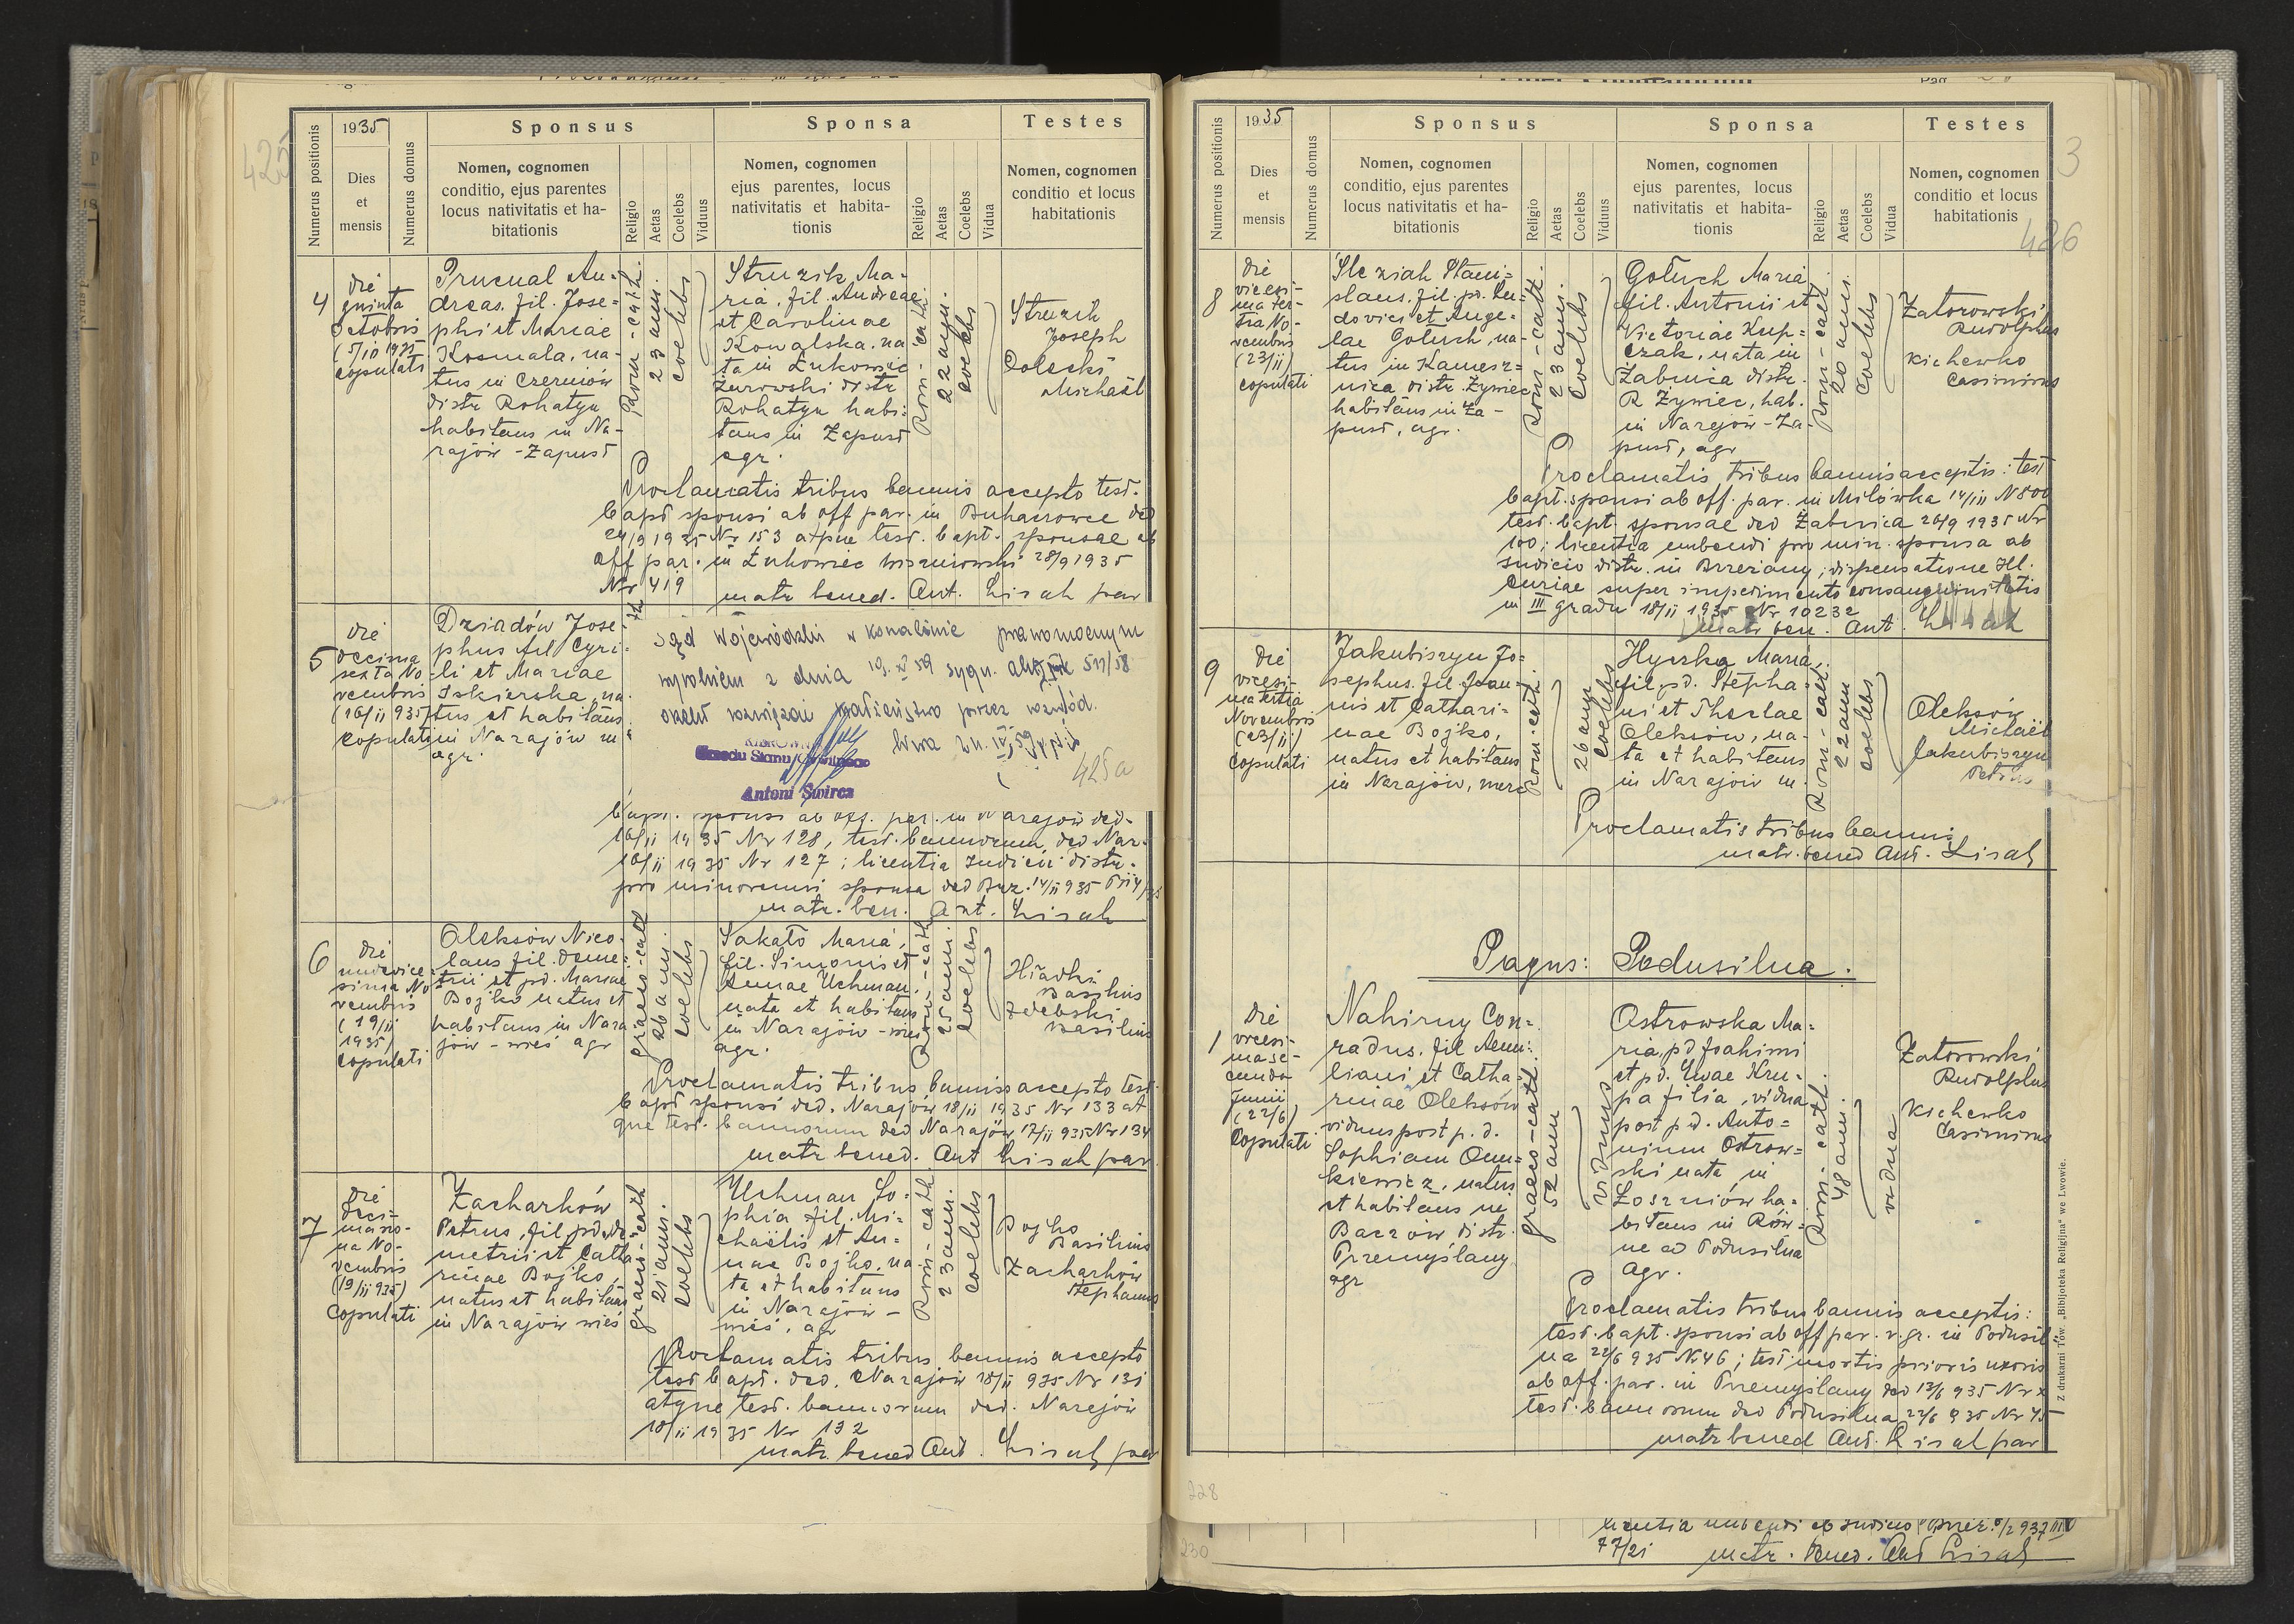 Numerus positionis
1935
Dies
et
mensis
Numerus domus
Sponsus
Nomen, cognomen
conditio, ejus parentes
locus nativitatis et ha-
bitationis
Religio
Aetas
Coelebs
Viduus
Sponsa
Nomen, cognomen
ejus parentes, locus
nativitatis et habita-
tionis
Religio
Aetas
Coelebs
Vidua
Testes
Nomen, cognomen
conditio et locus
habitationis
425
4
die
quinta
Octobris
(5/10 1935
copulati
Prucnal An-
dreas. fil. Jose=
phi et Mariae
Kosmala, na-
tus in Czerniów
distr Rohatyn
habitans in Na-
rajów - Zapust
Rom-cath.
23 ann.
coelebs
Struzik Ma-
ria, fil. Andreae
et Carolinae
Kowalska. na
ta in Łukowiec
Żurowski distr
Rohatyn habi=
tans in Zapust
agr.
Rom-cath.
22 ann.
coelebs
Struzik
Joseph
Michaël
Proclamatis tribus bannis accepto test.
bapt sponsi ab off par. in Bukaczowce ded
24/9 1935 Nr 153 atque test. bapt. sponsae ab
off par. in Łukowiec wiszniowski 28/9 1935
Nr 419
matr bened. Ant. Lisak par
5
die
decima
sexta No-
vembris
(16/11 935)
copulati
Dziadów Jose-
phus fil Cyri-
li et Mariae
Iskierska, na-
tus et habitans
in Narajów m
agr.
Sąd Wojewódzki w Koszalinie prawomocnym
wyrokiem z dnia 19. II 59 sygn. akt 511/58
orzekł rozwiązać małżeństwo przez rozwód.
Urzędu Stanu Cywilnego
Antoni Świrca
425a
bapt. sponsi ab off. par. in Narajów ded-
16/11 1935 Nr 128, test. bannorum ded Nar-
16/11 1935 Nr 127; licentia Judicii distr.
pro minorenni sponsa ded Brz. 14/11 935
matr. ben. Ant. Lisak
6
die
undevice=
sima No-
vembris
(19/11
1935)
copulati
Oleksów Nico-
laus fil. Deme-
trii et pd. Mariae
Bojko natus et
habitans in Nara
jów - wieś agr
graeco-cath
26 ann.
coelebs
Sakało Maria,
fil. Simonis et
Annae Uchman.
nata et habitans
in Narajów - wieś
agr.
Rom-cath
25 ann.
coelebs
Hładki
Basilius
Zdebski
Basilius
Proclamatis tribus bannis accepto test
bapt sponsi ded. Narajów 18/11 1935 Nr 133 at
que test. bannorum ded Narajów 17/11 935 Nr 134
matr bened. Ant Lisak par
7
die
deci=
ma no-
na No-
vembris
(19/11 935)
copulati
Zacharków
Petrus, fil. pd. De-
metrii et Catha
rinae Bojko,
natus et habitans
in Narajów wieś
graeco-cath
21 ann.
coelebs
Uchman So-
phia fil. Mi=
chaëlis et An-
nae Bojko, na-
ta et habitans
in Narajów -
wieś, agr
Rom-cath
23 ann.
coelebs
Bojko
Basilius
Zacharków
Stephanus
Proclamatis tribus bannis accepto
test bapt. ded. Narajów 18/11 935 Nr 131
atque test. bannorum ded. Narajów
18/11 1935 Nr 132
matr. bened Ant. Lisak par
Pag
Numerus positionis
1935
Dies
et
mensis
Numerus domus
Sponsus
Nomen, cognomen
conditio, ejus parentes
locus nativitatis et ha-
bitationis
Religio
Aetas
Coelebs
Viduus
Sponsa
Nomen, cognomen
ejus parentes, locus
nativitatis et habita-
tionis
Religio
Aetas
Coelebs
Vidua
Testes
Nomen, cognomen
conditio et locus
habitationis
3
426
8
die
vicesi-
ma ter-
tia No-
vembris
(23/11)
copulati
Śleziak Stani=
slaus. fil. pr. Lu=
dovici et Ange=
lae Gołuch, na-
tus in Kamesz=
nica distr. Żywiec
habitans in Za-
pust, agr.
Rom-cath.
23 ann.
coelebs
Gołuch Maria
fil. Antonii et
Victoriae Kup=
czak, nata in
Żabnica distr.
R Żywiec, hab.
in Narajów-Za-
pust, agr
Rom-cath.
20 ann.
coelebs
Zatorowski
Rudolphus
Kichewko
Casimirus
Proclamatis tribus bannis acceptis: test
bapt. sponsi ab off. par. in Milówka 14/11 N 800
test. bapt. sponsae ded Żabnica 26/9 1935 Nr
100; licentia nubendi pro min. sponsa ab
Judicio distr. in Brzeżany; dispensatione Ill.
Curiae super impedimento consanguinitatis
in III gradu 18/11 1935 Nr 10232
matr ben. Ant. Lisak
9
die
vicesi-
ma tertia
Novembris
(23/11)
copulati
Jakubiszyn Jo=
sephus. fil. Joan-
nis et Cathari-
nae Bojko,
natus et habitans
in Narajów, merc
Rom-cath.
26 ann
coelebs
Hyczka Maria,
fil. pd. Stepha-
ni et Theclae
Oleksów, na-
ta et habitans
in Narajów m.
Rom-cath.
22 ann
coelebs
Oleksów
Michaël
Jakubiszyn
Petrus
Proclamatis tribus bannis
matr. bened Ant. Lisak
Pagus: Podusilna.
1
die
vicesi-
ma se-
cunda
Junii
(22/6)
copulati
Nahirny Con=
radus. fil Aemi=
liani et Catha=
rinae Oleksów
viduus post p. d.
Sophiam
natus
et habitans in
Baczów, distr.
Przemyślany
agr
graeco-cath
52 ann
viduus
Ostrowska Ma=
ria, pd Joahimi
et pd. Evae Kru-
pa filia, vidua
post pd. Anto=
nium Ostrow=
ski nata in
Łoszniów ha=
bitans in Rów=
ne ad Podusilna
agr.
Rom-cath.
48 ann.
vidua
Zatorowski
Rudolphus
Kichewko
Casimirus
Proclamatis tribus bannis acceptis:
test. bapt. sponsi ab off par. r. gr. in Podusil=
na 22/6 935 Nr 46; test. mortis prioris uxoris
ab off. par. in Przemyślany ded 13/6 935 Nr x
test. bannorum ded Podusilna 22/6 935 Nr 45
matr bened Ant. Lisak par
Z drukarni Tow. „Bibljoteka Religijna" we Lwowie.
228
230
licentia nubendi ab Judicio Brzez. 6/2 937 III
77/21
matr. bened. Ant Lisak